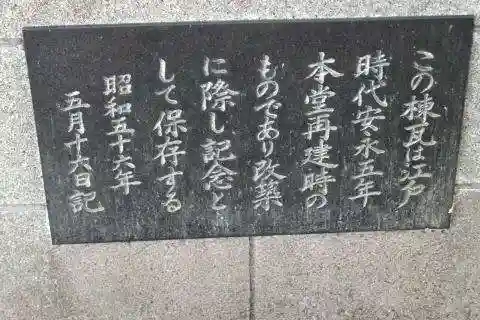 この棟瓦は江戸
時代安永五年
本堂再建時の
ものであり改築
に際し記念と
して保存する
昭和五十六年
五月十六日記